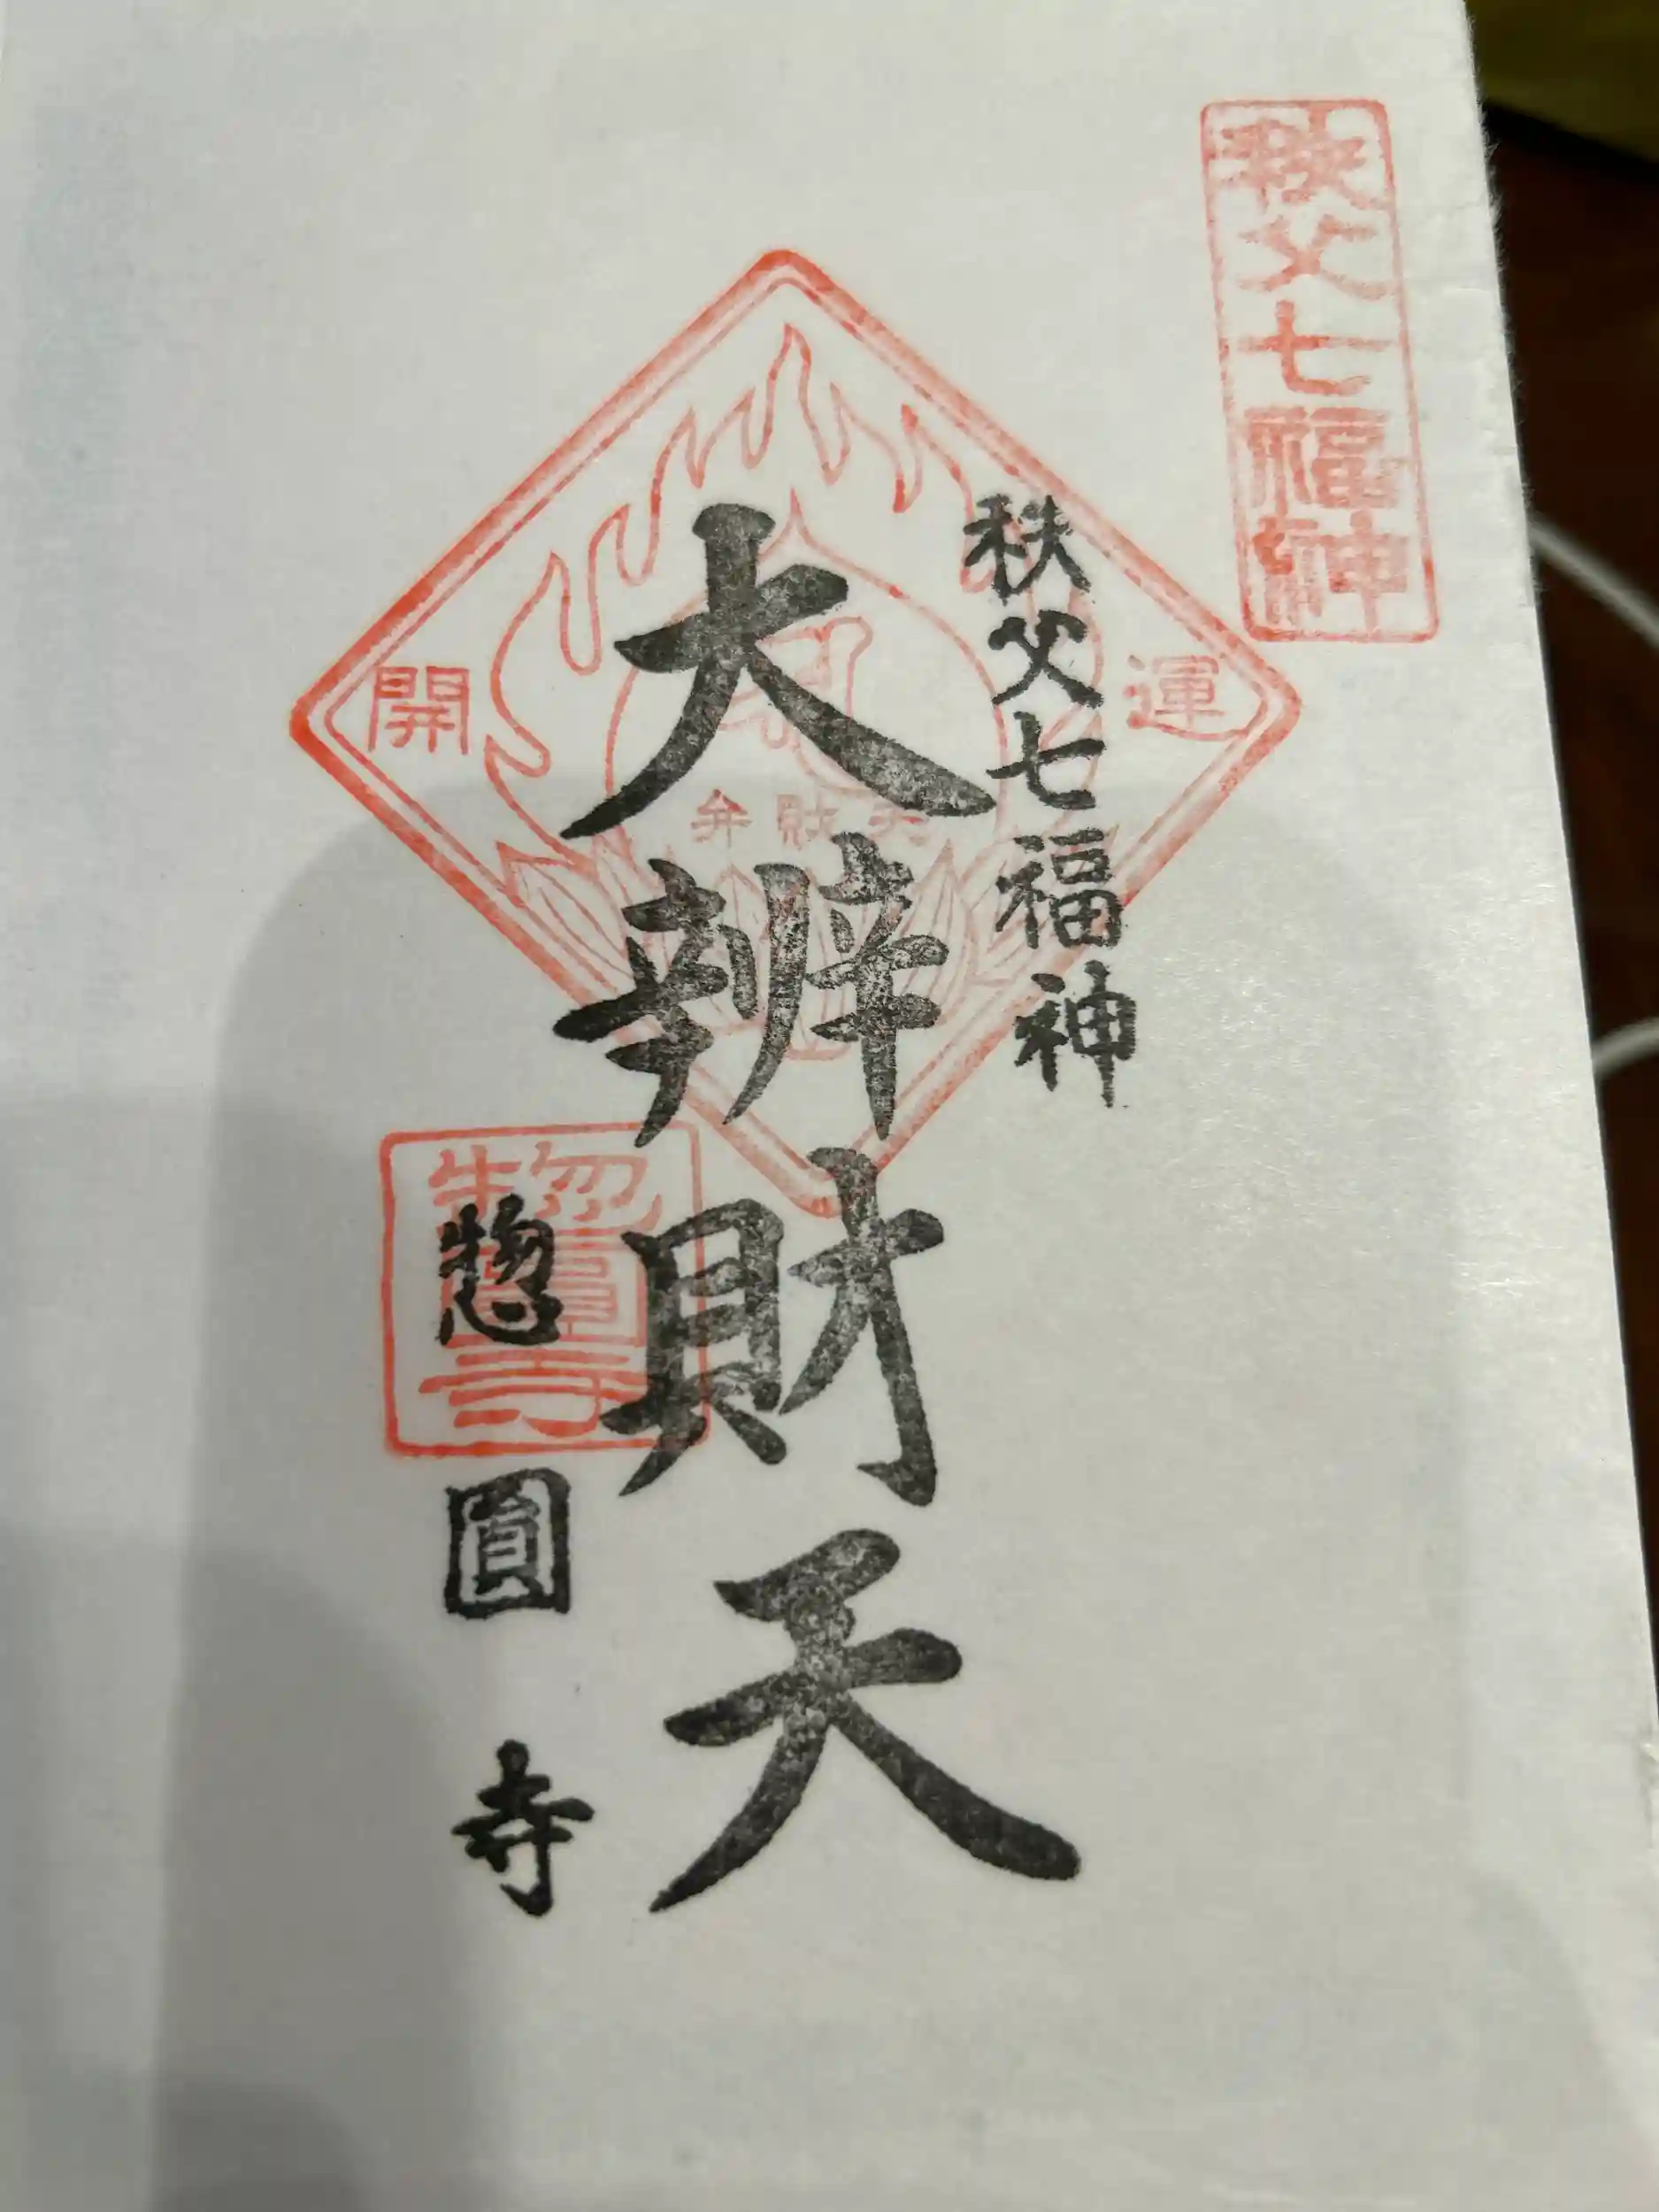 秩父七福神
秩父七福神
運
開
弁財天
大辨財天
惣圓寺
惣圓寺